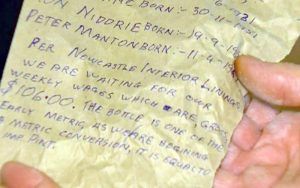 BORN:- 30-11-
NIDDRIE BORN:- 19-9-19
PETER MANTON BORN:- 11-4-19
PER NEWCASTLE INTERIOR LININGS
WE ARE WAITING FOR OUR
WEEKLY WAGES WHICH ARE GROSS
$106.00. THE BOTTLE IS ONE OF THE
EARLY METRIC AS WE ARE BEGINING
METRIC CONVERSION, IT IS EQUAL TO
IMP PINT.